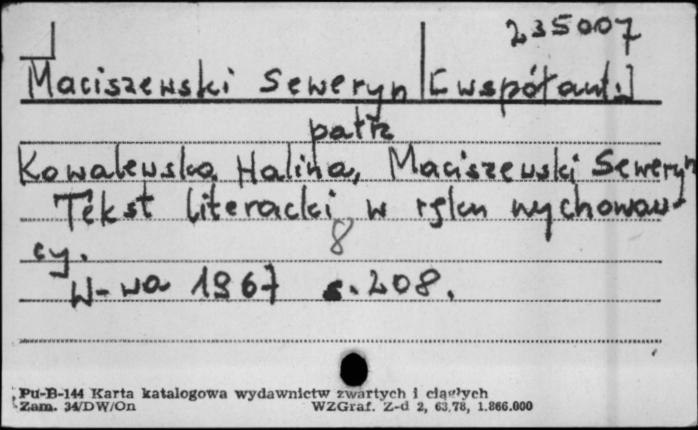 235007
Maciszewski Seweryn [współaut.]
patrz
Kowalewska Halina, Maciszewski Seweryn
Tekst literacki w ręku wychowaw-
cy. 8
W-wa 1967 s. 208.
Pu-B-144 Karta katalogowa wydawnictw zwartych i ciągłych
Zam. 34/DW/On WZGraf. Z-d 2, 63,78, 1.866.000